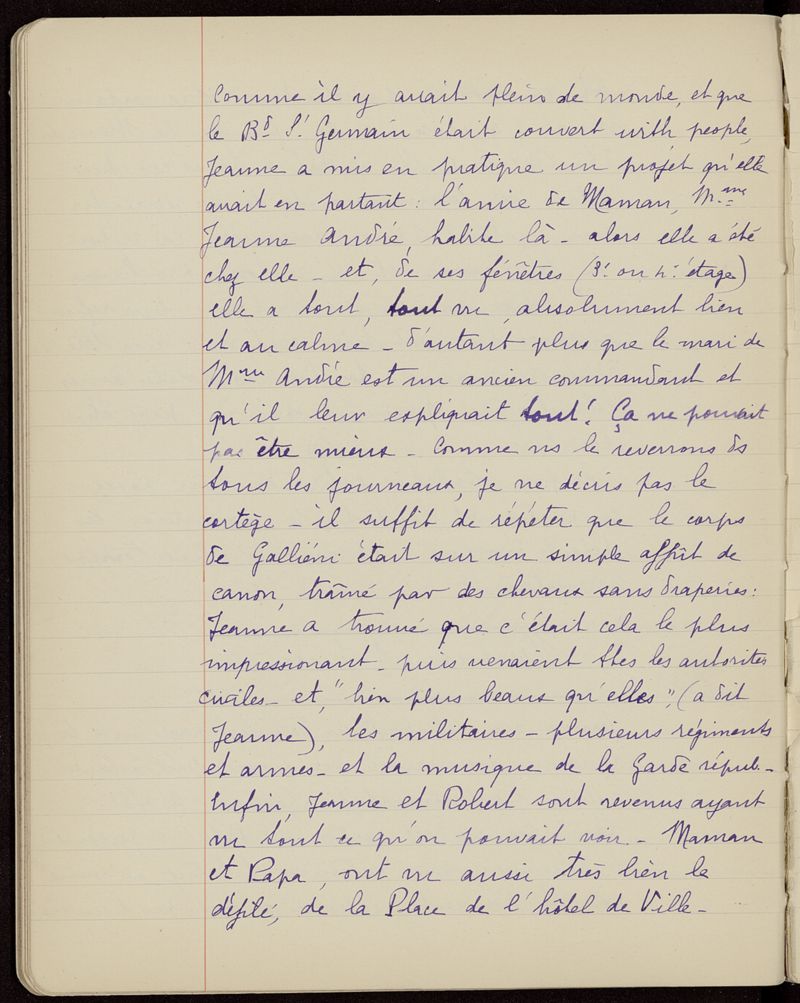 Comme il y avait plein de monde, et que
le Bd St Germain était couvert with people,
Jeanne a mis en pratique un projet qu'elle
avait en partant : l'amie de Maman, Mme
Jeanne André, habite là - alors elle a été
chez elle - et, de ses fénêtres (3e ou 4e étage)
elle a tout, tout vu, absolument bien
et au calme - d'autant plus que le mari de
Mme André est un ancien commandant et
qu'il leur expliquait tout! Ça ne pouvait
pas être mieux - Comme ns le reverrons ds
tous les journeaux, je ne décris pas le
cortège - il suffit de répéter que le corps
de Galliéni était sur un simple affût de
canon, traîné par des chevaux sans draperies:
Jeanne a trouvé que c'était cela le plus
impressionant - puis venaient ttes les autorités
civiles - et, "bien plus beaux qu'elles", (a dit
Jeanne), les militaires - plusieurs régiments
et armes - et la musique de la Garde répub. -
Enfin, Jeanne et Robert sont revenus ayant
vu tout ce qu'on pouvait voir - Maman
et Papa, ont vu aussi très bien le
défilé, de la Place de l'hôtel de Ville -